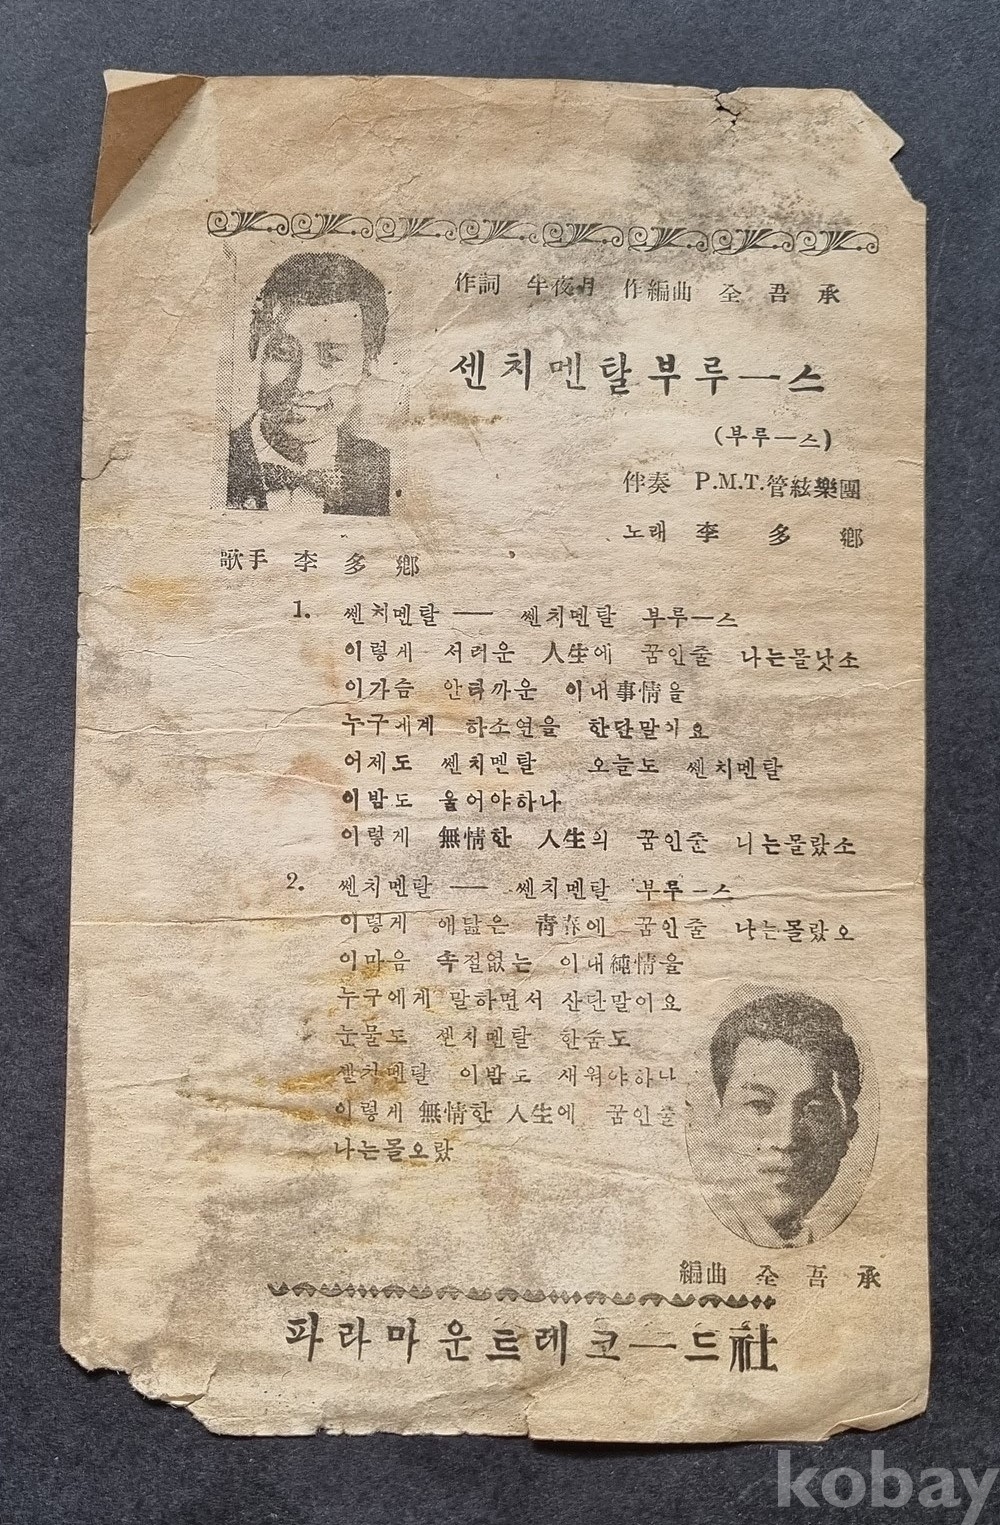 作詞 半夜月 作編曲 全吾承
센치멘탈부루ㅡ스
(부루ㅡ스)
伴奏 P.M.T.管絃樂團
노래 李多鄕
歌手 李多鄕
1. 쎈치멘탈 —— 쎈치멘탈 부루ㅡ스
이렇게 서러운 人生에 꿈인줄 나는몰낫소
이가슴 안타까운 이내事情을
누구에게 하소연을 한단말이요
어제도 쎈치멘탈 오늘도 쎈치멘탈
이밤도 울어야하나
이렇게 無情한 人生의 꿈인줄 나는몰랐소
2. 쎈치멘탈 —— 쎈치멘탈 부루ㅡ스
이렇게 애닲은 靑春에 꿈인줄 나는몰랐오
이마음 속절없는 이내純情을
누구에게 말하면서 산단말이요
눈물도 쎈치멘탈 한숨도
쎈치멘탈 이밤도 새워야하나
이렇게 無情한 人生에 꿈인줄
나는몰오랐
編曲 全吾承
파라마운트레코ㅡ드社
kobay